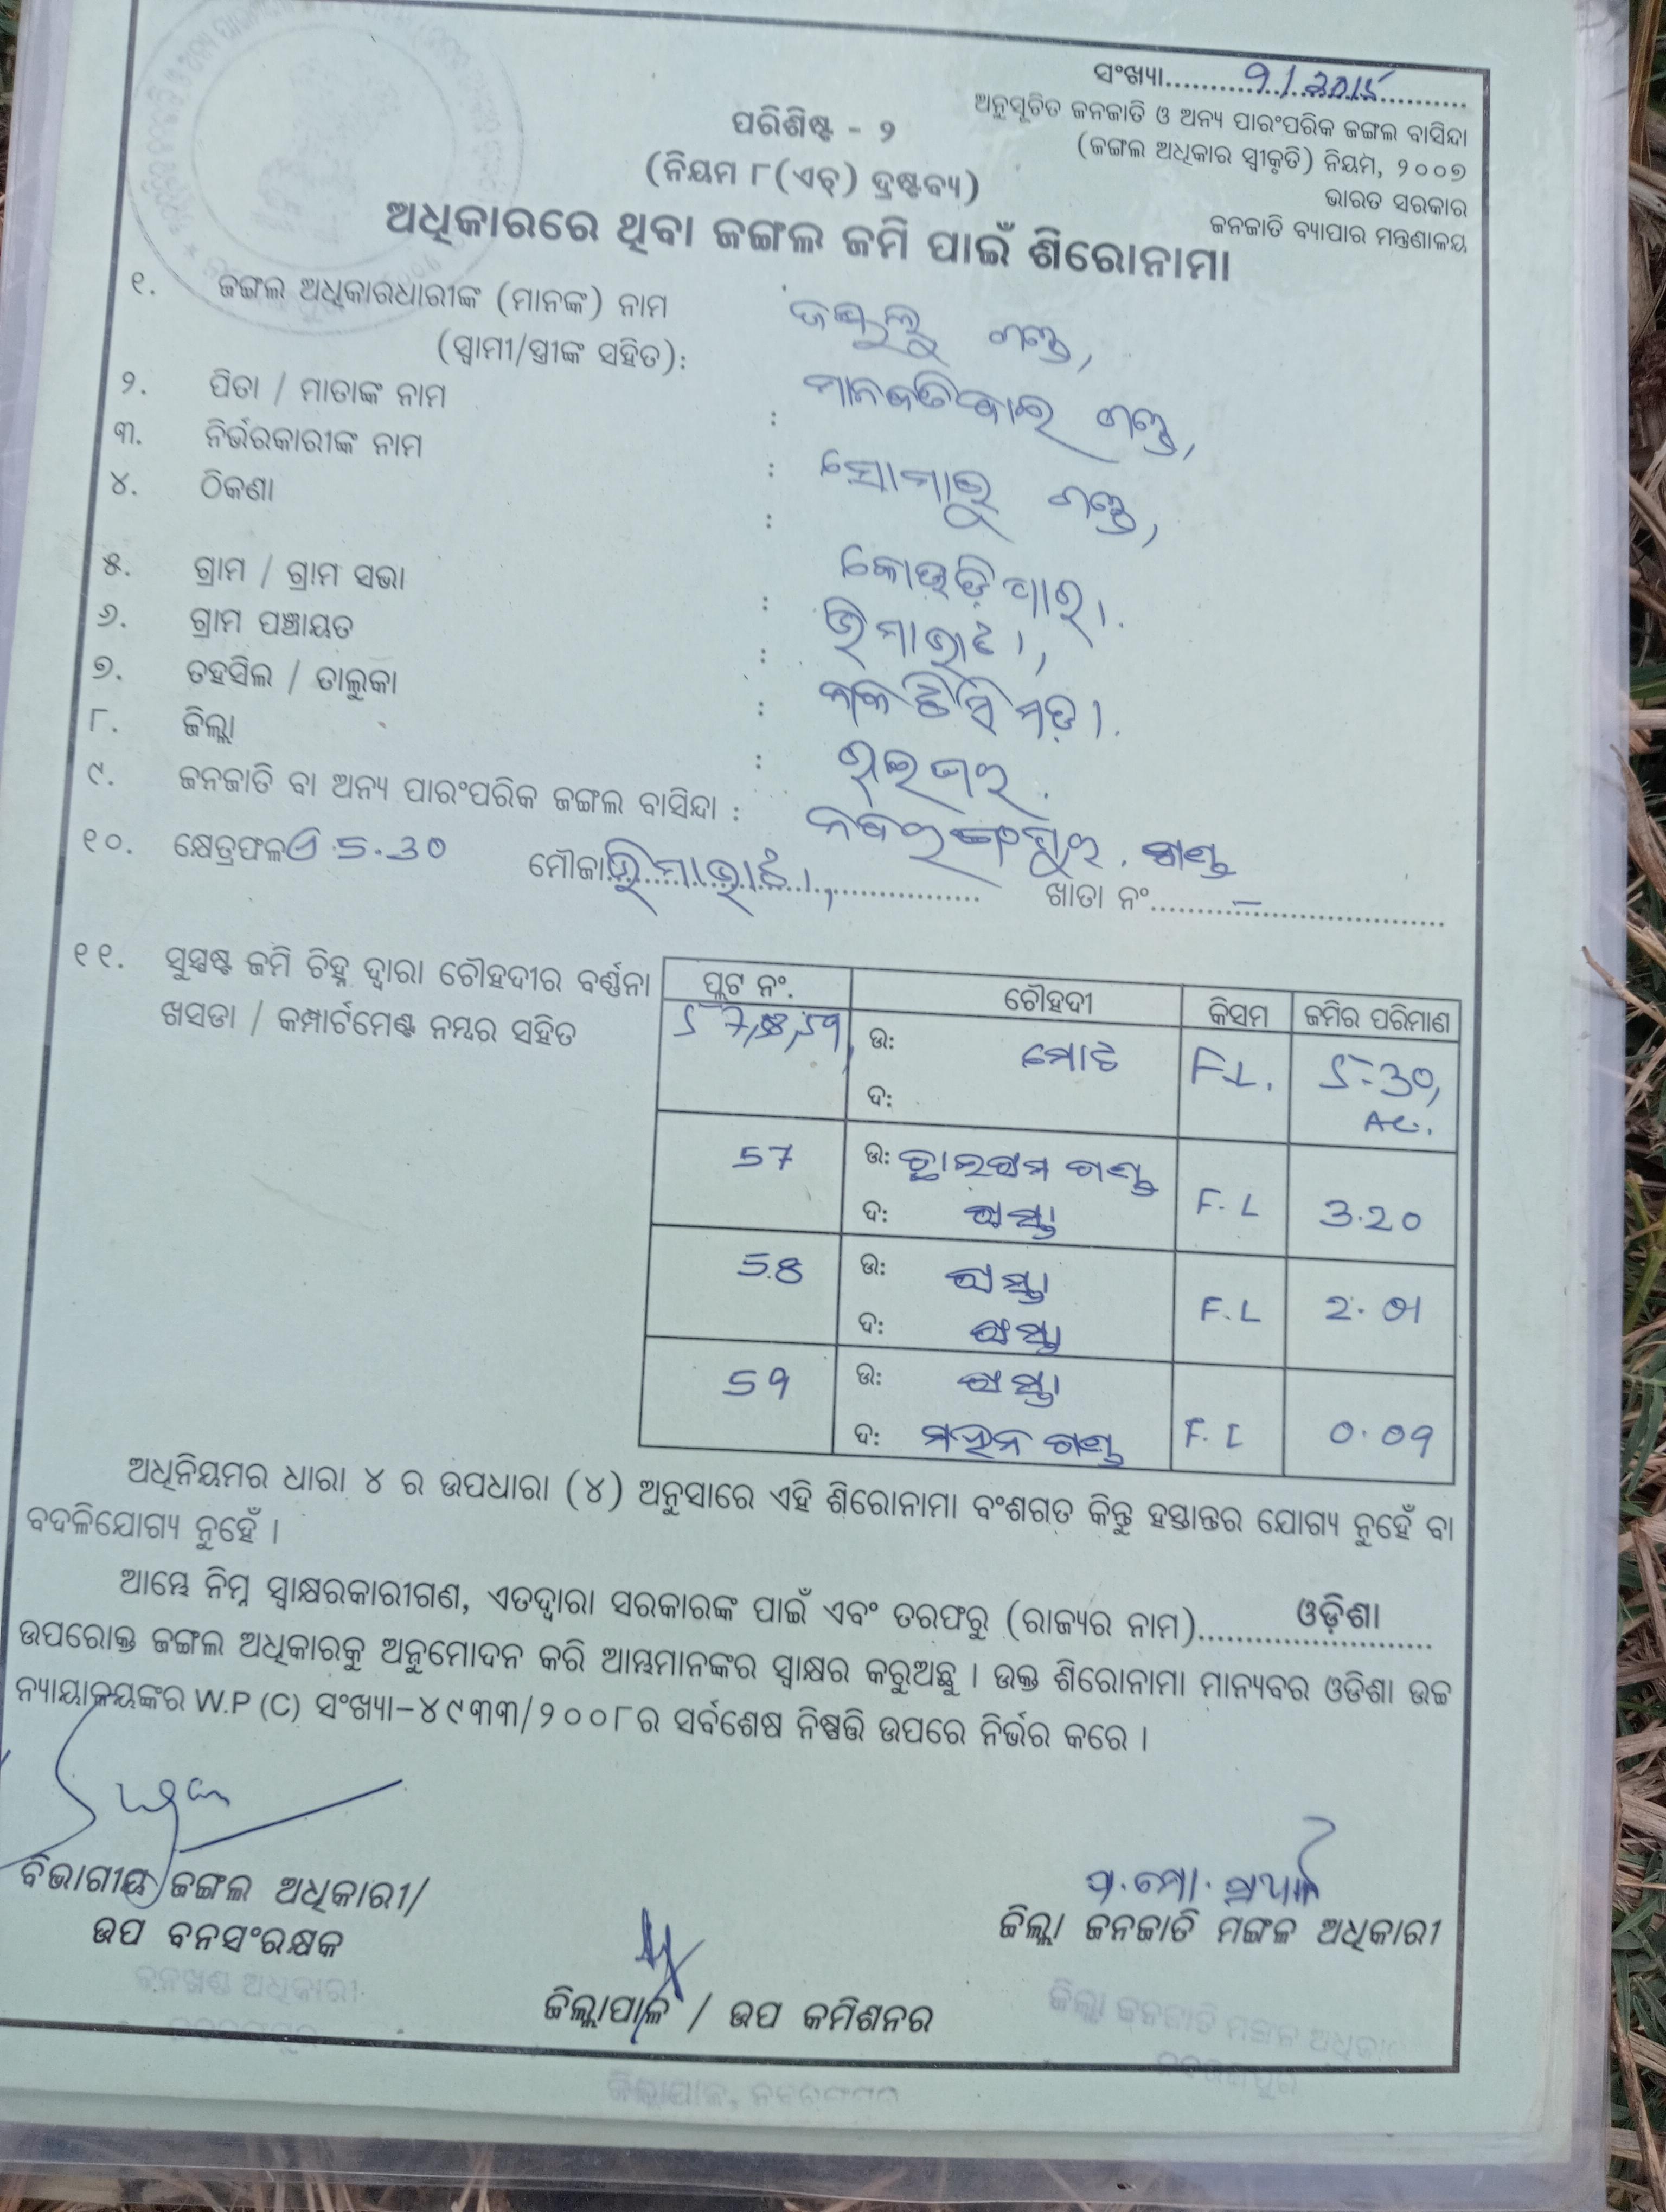 ସଂଖ୍ୟା..........9/2015..........
ଅନୁସୂଚିତ ଜନଜାତି ଓ ଅନ୍ୟ ପାରଂପରିକ ଜଙ୍ଗଲ ବାସିନ୍ଦା
(ଜଙ୍ଗଲ ଅଧିକାର ସ୍ୱୀକୃତି) ନିୟମ, ୨୦୦୭
ଭାରତ ସରକାର
ଜନଜାତି ବ୍ୟାପାର ମନ୍ତ୍ରଣାଳୟ
ପରିଶିଷ୍ଟ - ୨
(ନିୟମ ୮(ଏଚ୍) ଦ୍ରଷ୍ଟବ୍ୟ)
ଅଧିକାରରେ ଥିବା ଜଙ୍ଗଲ ଜମି ପାଇଁ ଶିରୋନାମା
୧. ଜଙ୍ଗଲ ଅଧିକାରଧାରୀଙ୍କ (ମାନଙ୍କ) ନାମ
(ସ୍ୱାମୀ/ସ୍ତ୍ରୀଙ୍କ ସହିତ): ଗଣ୍ଡ,
୨. ପିତା / ମାତାଙ୍କ ନାମ : ଗଣ୍ଡ,
୩. ନିର୍ଭରକାରୀଙ୍କ ନାମ : ସୋମାରୁ ଗଣ୍ଡ,
୪. ଠିକଣା :
୫. ଗ୍ରାମ / ଗ୍ରାମ ସଭା :
୬. ଗ୍ରାମ ପଞ୍ଚାୟତ :
୭. ତହସିଲ / ତାଲୁକା :
୮. ଜିଲ୍ଲା :
୯. ଜନଜାତି ବା ଅନ୍ୟ ପାରଂପରିକ ଜଙ୍ଗଲ ବାସିନ୍ଦା : ନବରଙ୍ଗପୁର. ଗଣ୍ଡ
୧୦. କ୍ଷେତ୍ରଫଳ 5.30 ମୌଜା.............................. ଖାତା ନଂ..........–....................
୧୧. ସୁସ୍ପଷ୍ଟ ଜମି ଚିହ୍ନ ଦ୍ୱାରା ଚୌହଦୀର ବର୍ଣ୍ଣନା
ଖସଡା / କମ୍ପାର୍ଟମେଣ୍ଟ ନମ୍ବର ସହିତ
ପ୍ଲଟ ନଂ. ଚୌହଦୀ କିସମ ଜମିର ପରିମାଣ
57,58,59, ଉ: ମୋଟ F.L. 5-30,
ଦ: AC.
57 ଉ: ଗଣ୍ଡ F.L 3.20
ଦ: ରାସ୍ତା
58 ଉ: ରାସ୍ତା F.L 2.01
ଦ: ରାସ୍ତା
59 ଉ: ରାସ୍ତା F.L 0.09
ଦ: ଗଣ୍ଡ
ଅଧିନିୟମର ଧାରା ୪ ର ଉପଧାରା (୪) ଅନୁସାରେ ଏହି ଶିରୋନାମା ବଂଶଗତ କିନ୍ତୁ ହସ୍ତାନ୍ତର ଯୋଗ୍ୟ ନୁହେଁ ବା
ବଦଳିଯୋଗ୍ୟ ନୁହେଁ ।
ଆମ୍ଭେ ନିମ୍ନ ସ୍ୱାକ୍ଷରକାରୀଗଣ, ଏତଦ୍ୱାରା ସରକାରଙ୍କ ପାଇଁ ଏବଂ ତରଫରୁ (ରାଜ୍ୟର ନାମ)..........ଓଡ଼ିଶା..........
ଉପରୋକ୍ତ ଜଙ୍ଗଲ ଅଧିକାରକୁ ଅନୁମୋଦନ କରି ଆମ୍ଭମାନଙ୍କର ସ୍ୱାକ୍ଷର କରୁଅଛୁ । ଉକ୍ତ ଶିରୋନାମା ମାନ୍ୟବର ଓଡିଶା ଉଚ୍ଚ
ନ୍ୟାୟାଳୟଙ୍କର W.P (C) ସଂଖ୍ୟା-୪୯୩୩/୨୦୦୮ର ସର୍ବଶେଷ ନିଷ୍ପତ୍ତି ଉପରେ ନିର୍ଭର କରେ ।
ବିଭାଗୀୟ ଜଙ୍ଗଲ ଅଧିକାରୀ/
ଉପ ବନସଂରକ୍ଷକ
ଜିଲ୍ଲା ଜନଜାତି ମଙ୍ଗଳ ଅଧିକାରୀ
ଜିଲ୍ଲାପାଳ / ଉପ କମିଶନର
ବନଖଣ୍ଡ ଅଧିକାରୀ
ଜିଲ୍ଲା ଜନଜାତି ମଙ୍ଗଳ ଅଧିକାରୀ
ଜିଲ୍ଲାପାଳ, ନବରଙ୍ଗପୁର